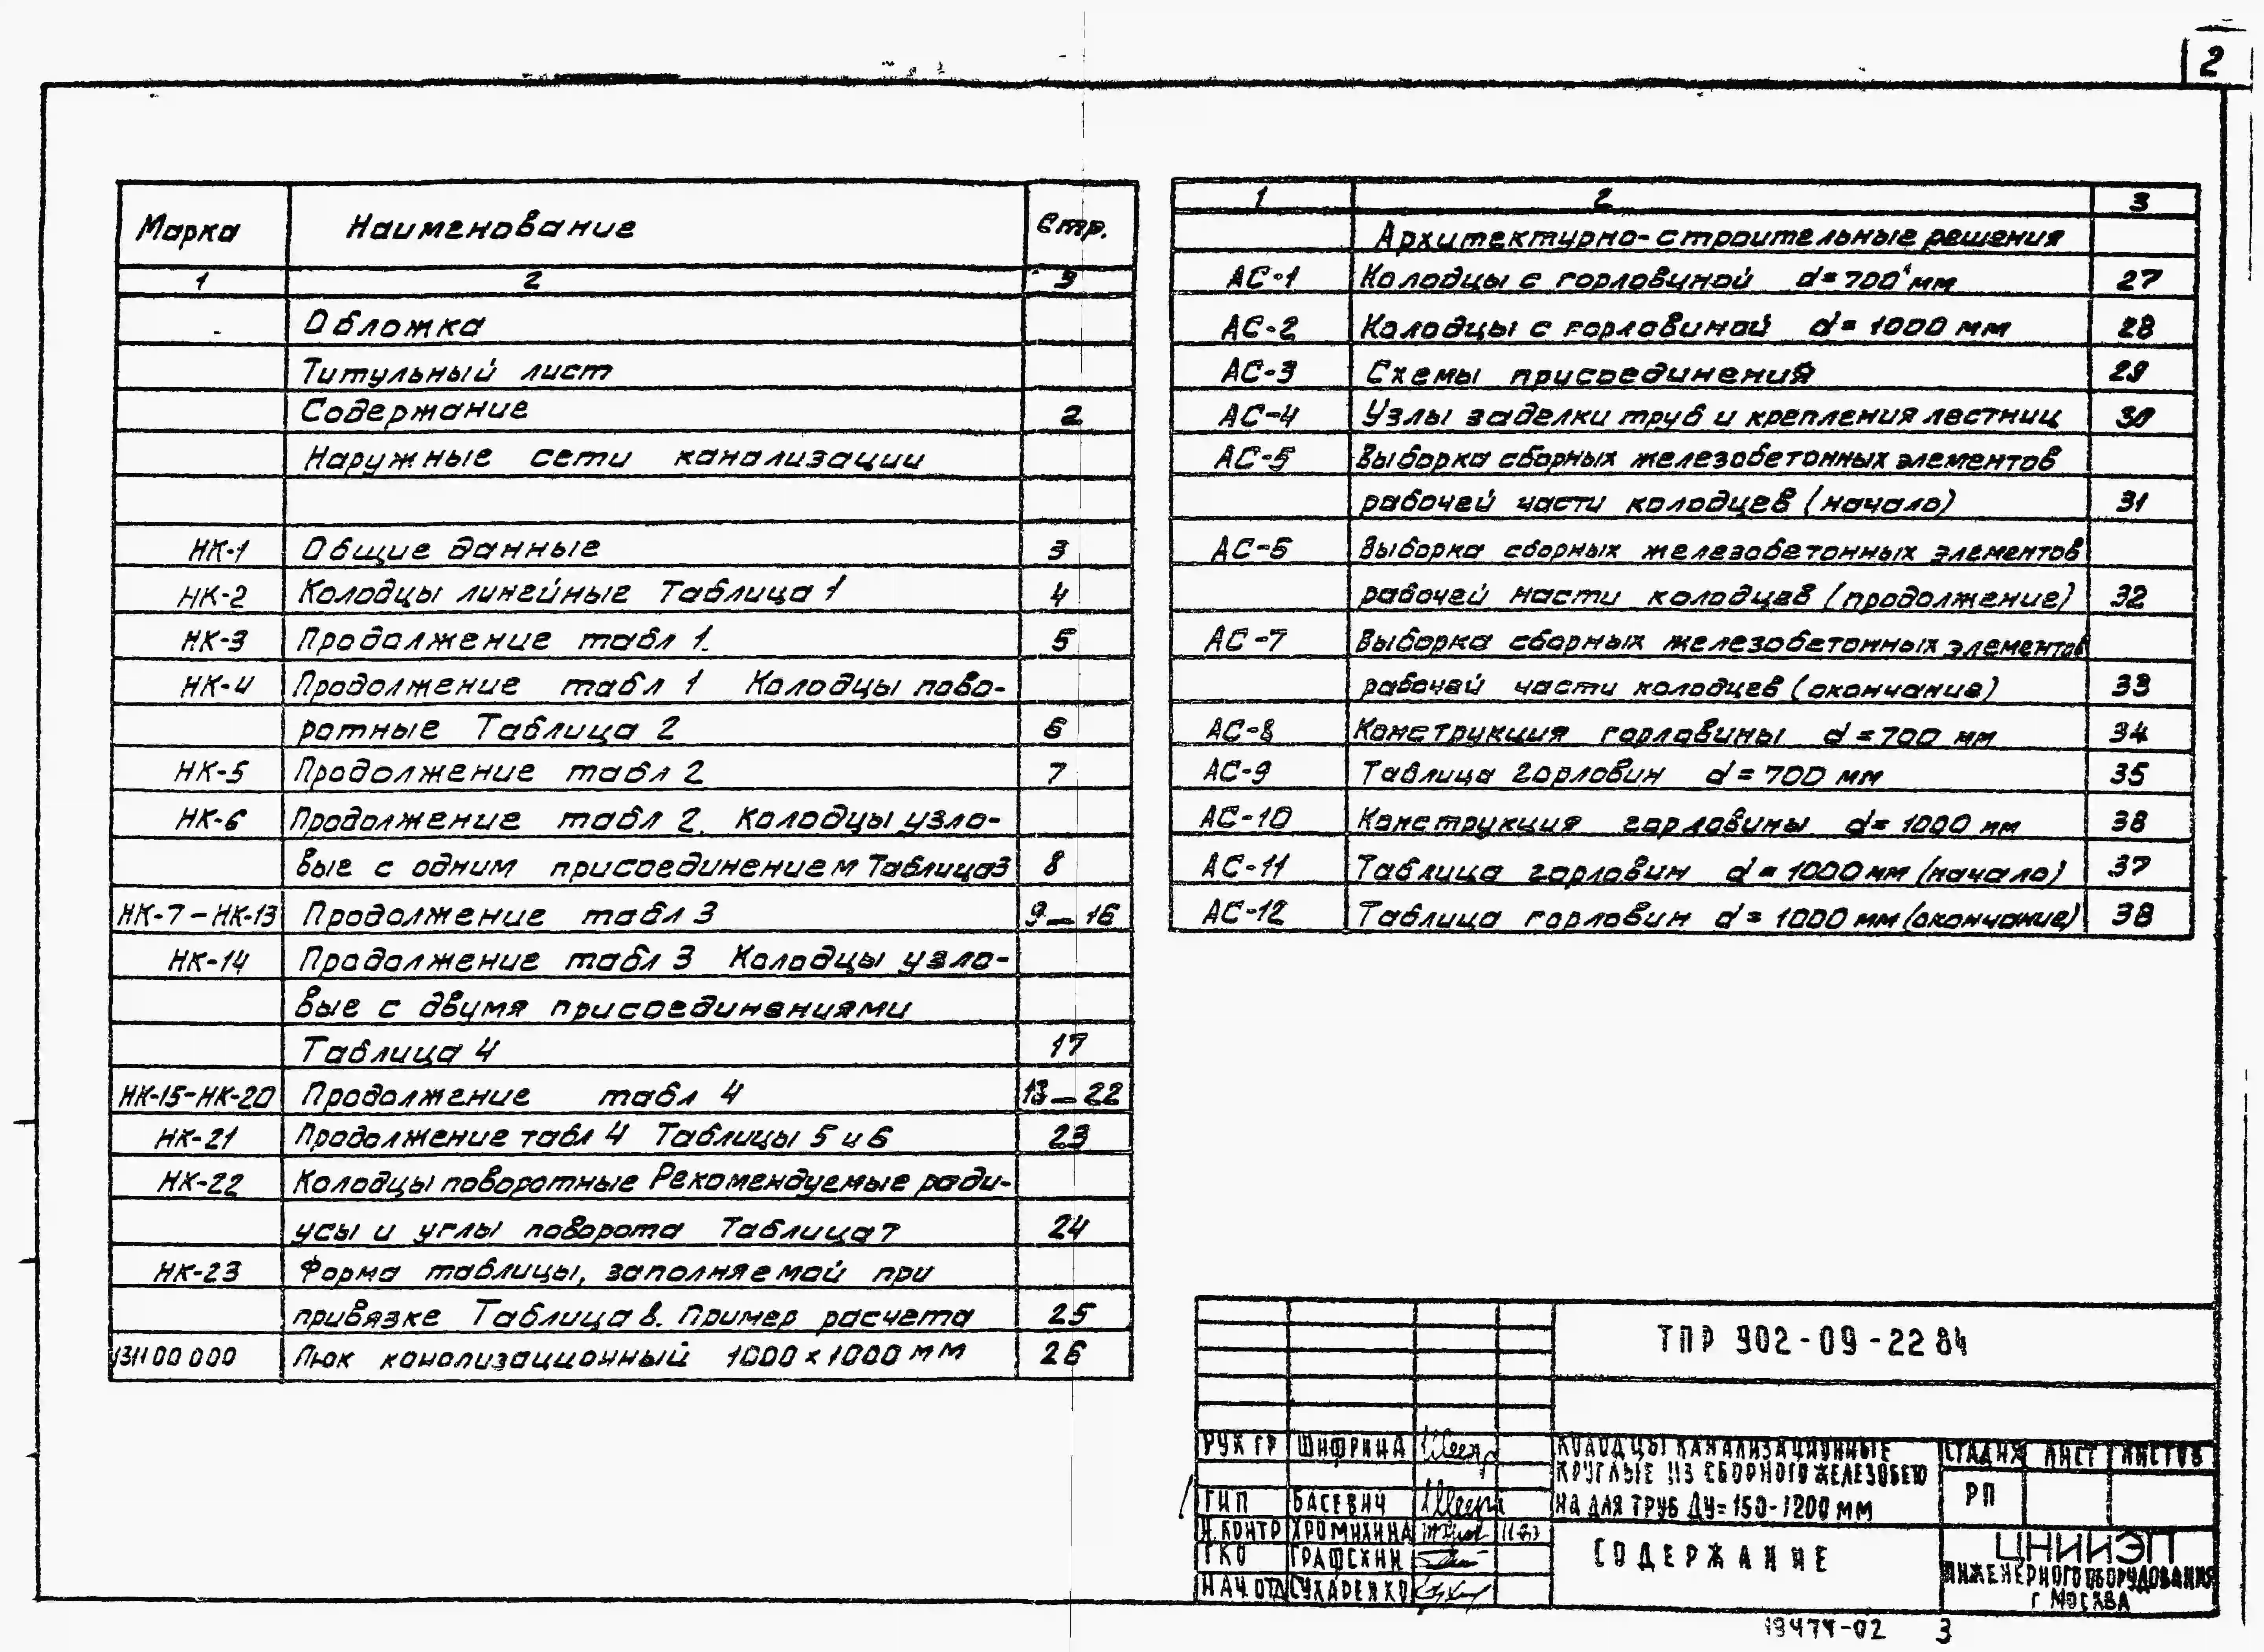 2
Марка Наименование Стр.
1 2 3
Обложка
Титульный лист
Содержание 2
Наружные сети канализации
НК-1 Общие данные 3
НК-2 Колодцы линейные Таблица 1 4
НК-3 Продолжение табл 1. 5
НК-4 Продолжение табл 1 Колодцы пово-
ротные Таблица 2 6
НК-5 Продолжение табл 2 7
НК-6 Продолжение табл 2. Колодцы узло-
вые с одним присоединением Таблица3 8
НК-7-НК-13 Продолжение табл 3 9-16
НК-14 Продолжение табл 3 Колодцы узло-
вые с двумя присоединениями
Таблица 4 17
НК-15-НК-20 Продолжение табл 4 13-22
НК-21 Продолжение табл 4 Таблицы 5 и 6 23
НК-22 Колодцы поворотные Рекомендуемые ради-
усы и углы поворота Таблица 7 24
НК-23 Форма таблицы, заполняемой при
привязке Таблица 8. Пример расчета 25
1311 00 000 Люк канализационный 1000 x 1000 мм 26
1 2 3
Архитектурно-строительные решения
АС-1 Колодцы с горловиной d=700 мм 27
АС-2 Колодцы с горловиной d=1000 мм 28
АС-3 Схемы присоединения 29
АС-4 Узлы заделки труб и крепления лестниц 30
АС-5 Выборка сборных железобетонных элементов
рабочей части колодцев (начало) 31
АС-6 Выборка сборных железобетонных элементов
рабочей части колодцев (продолжение) 32
АС-7 Выборка сборных железобетонных элементов
рабочей части колодцев (окончание) 33
АС-8 Конструкция горловины d=700 мм 34
АС-9 Таблица горловин d=700 мм 35
АС-10 Конструкция горловины d=1000 мм 36
АС-11 Таблица горловин d=1000 мм (начало) 37
АС-12 Таблица горловин d=1000 мм (окончание) 38
ТПР 902-09-22 84
РУК ГР ШИФРИНА
ГИП БАСЕВИЧ
Н.КОНТР ХРОМИХИНА 11-83
ГКО ГРАФСКИЙ
НАЧ ОТД СУХАРЕНКО
КОЛОДЦЫ КАНАЛИЗАЦИОННЫЕ
КРУГЛЫЕ ИЗ СБОРНОГО ЖЕЛЕЗОБЕТО
НА ДЛЯ ТРУБ Ду=150-1200 ММ
СТАДИЯ ЛИСТ ЛИСТОВ
РП
СОДЕРЖАНИЕ
ЦНИИЭП
ИНЖЕНЕРНОГО ОБОРУДОВАНИЯ
г МОСКВА
19474-02 3